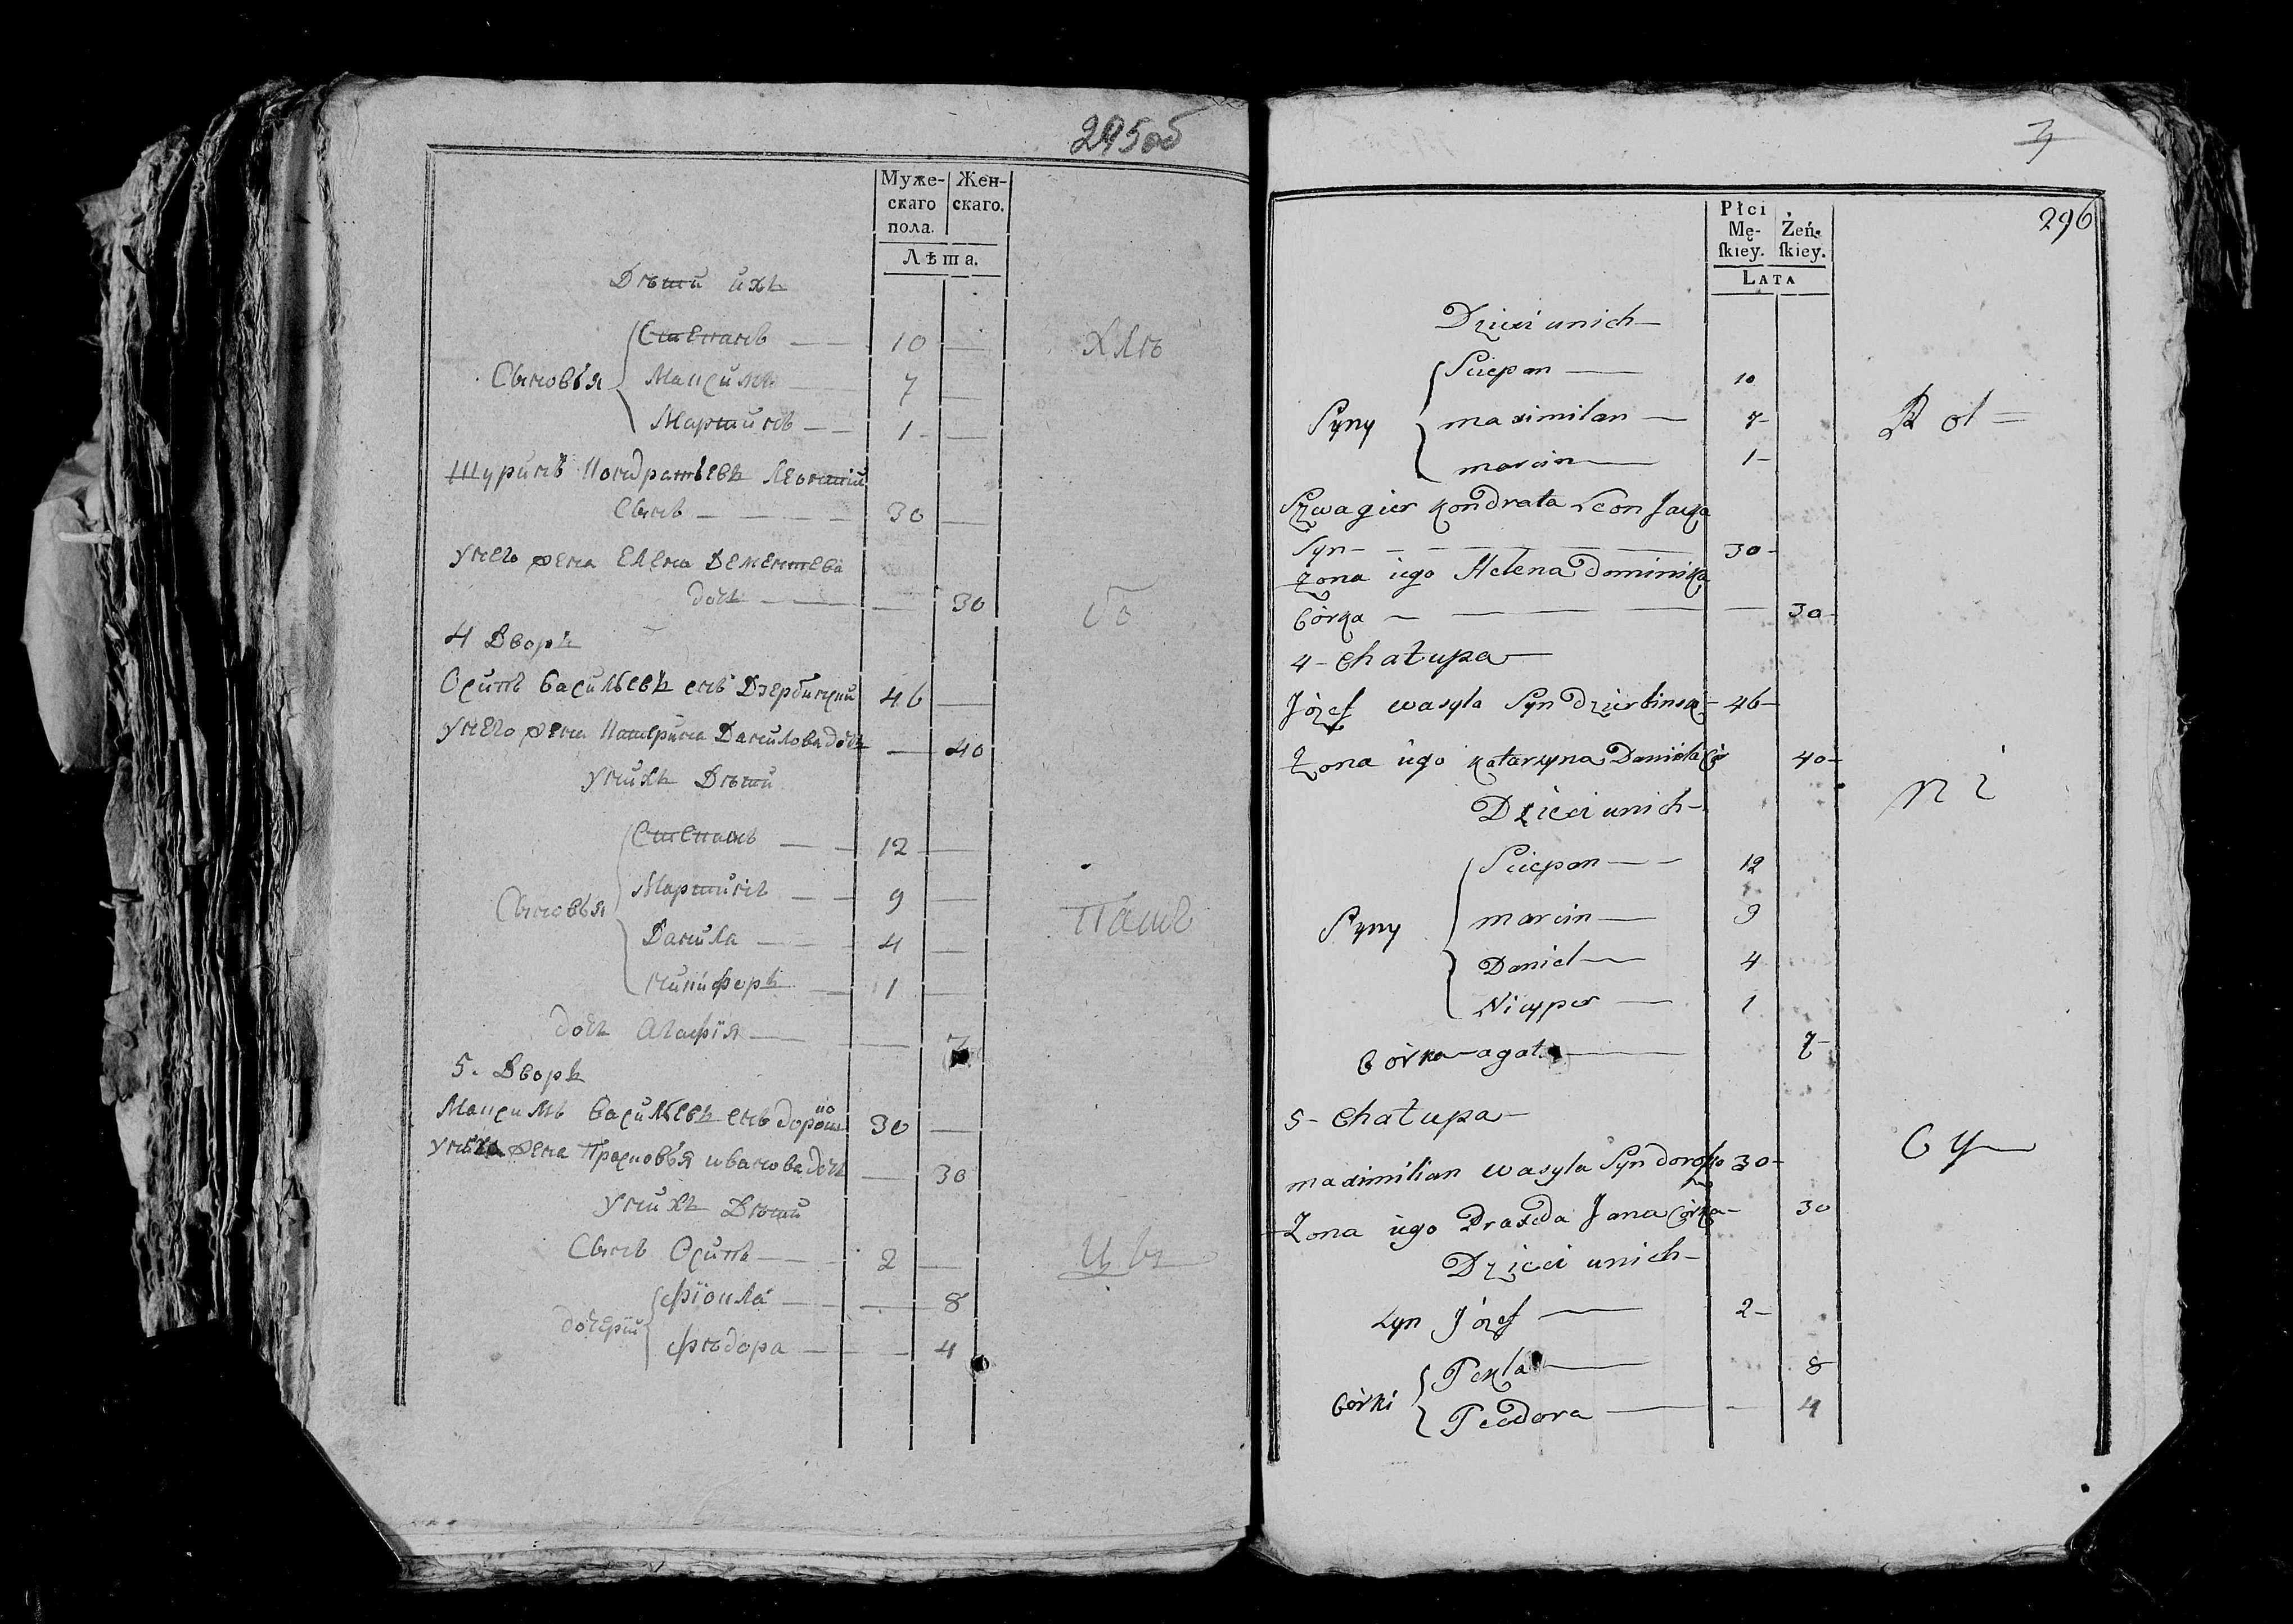 295об
Муже- Жен-
скаго скаго.
пола.
Лѣта.
Дѣти ихъ
Степанъ — 10 —
Хлѣ
Сыновья Максимъ — 7 —
Мартинъ — 1 —
Шуринъ Кондратьевъ Леонтій
Сынъ — 30 —
У него жена Елена Дементева
дочь — — 30
бо
4 Дворъ
Осипъ Васильевъ снъ Дзербинский 46 —
У него жена Катерина Данилова дочь — 40
У нихъ Дѣти
Степанъ — 12 —
Мартинъ — 9 —
Сыновья
Паш
Данила — 4 —
Никифоръ — 1 —
дочь Агафія — — 7
5. Дворъ
Максимъ Васильевъ снъ Дорошко 30 —
жена Прасковья Иванова дочь — 30
У нихъ Дѣти
Сынъ Осипъ — 2 —
цы
Фіокла — — 8
дочери
Фѣдора — — 4
3
296
Płci
Mę- Żeń-
skiey. skiey.
Lata
Dzieci unich
Sciepan — 10
Syny maximilan — 7
Rol=
marcin — 1
Szwagier Kondrata Leon Jacka
Syn — 30
Zona iego Helena Dominika
Córka — 30
4 - Chałupa
Józef wasyla Syn Dzierbinski 46
Zona iego Katarzyna Daniela Cór 40
ni
Dzieci unich
Sciepan — 12
Syny marcin — 9
Daniel — 4
Nicyper — 1
Córka agata — 7
5 - Chałupa
cy
maximilian wasyla Syn doroszko 30
Zona iego Praxeda Jana Córka 30
Dzieci unich
Syn Józef — 2
Tekla — 8
Córki
Teodora — 4